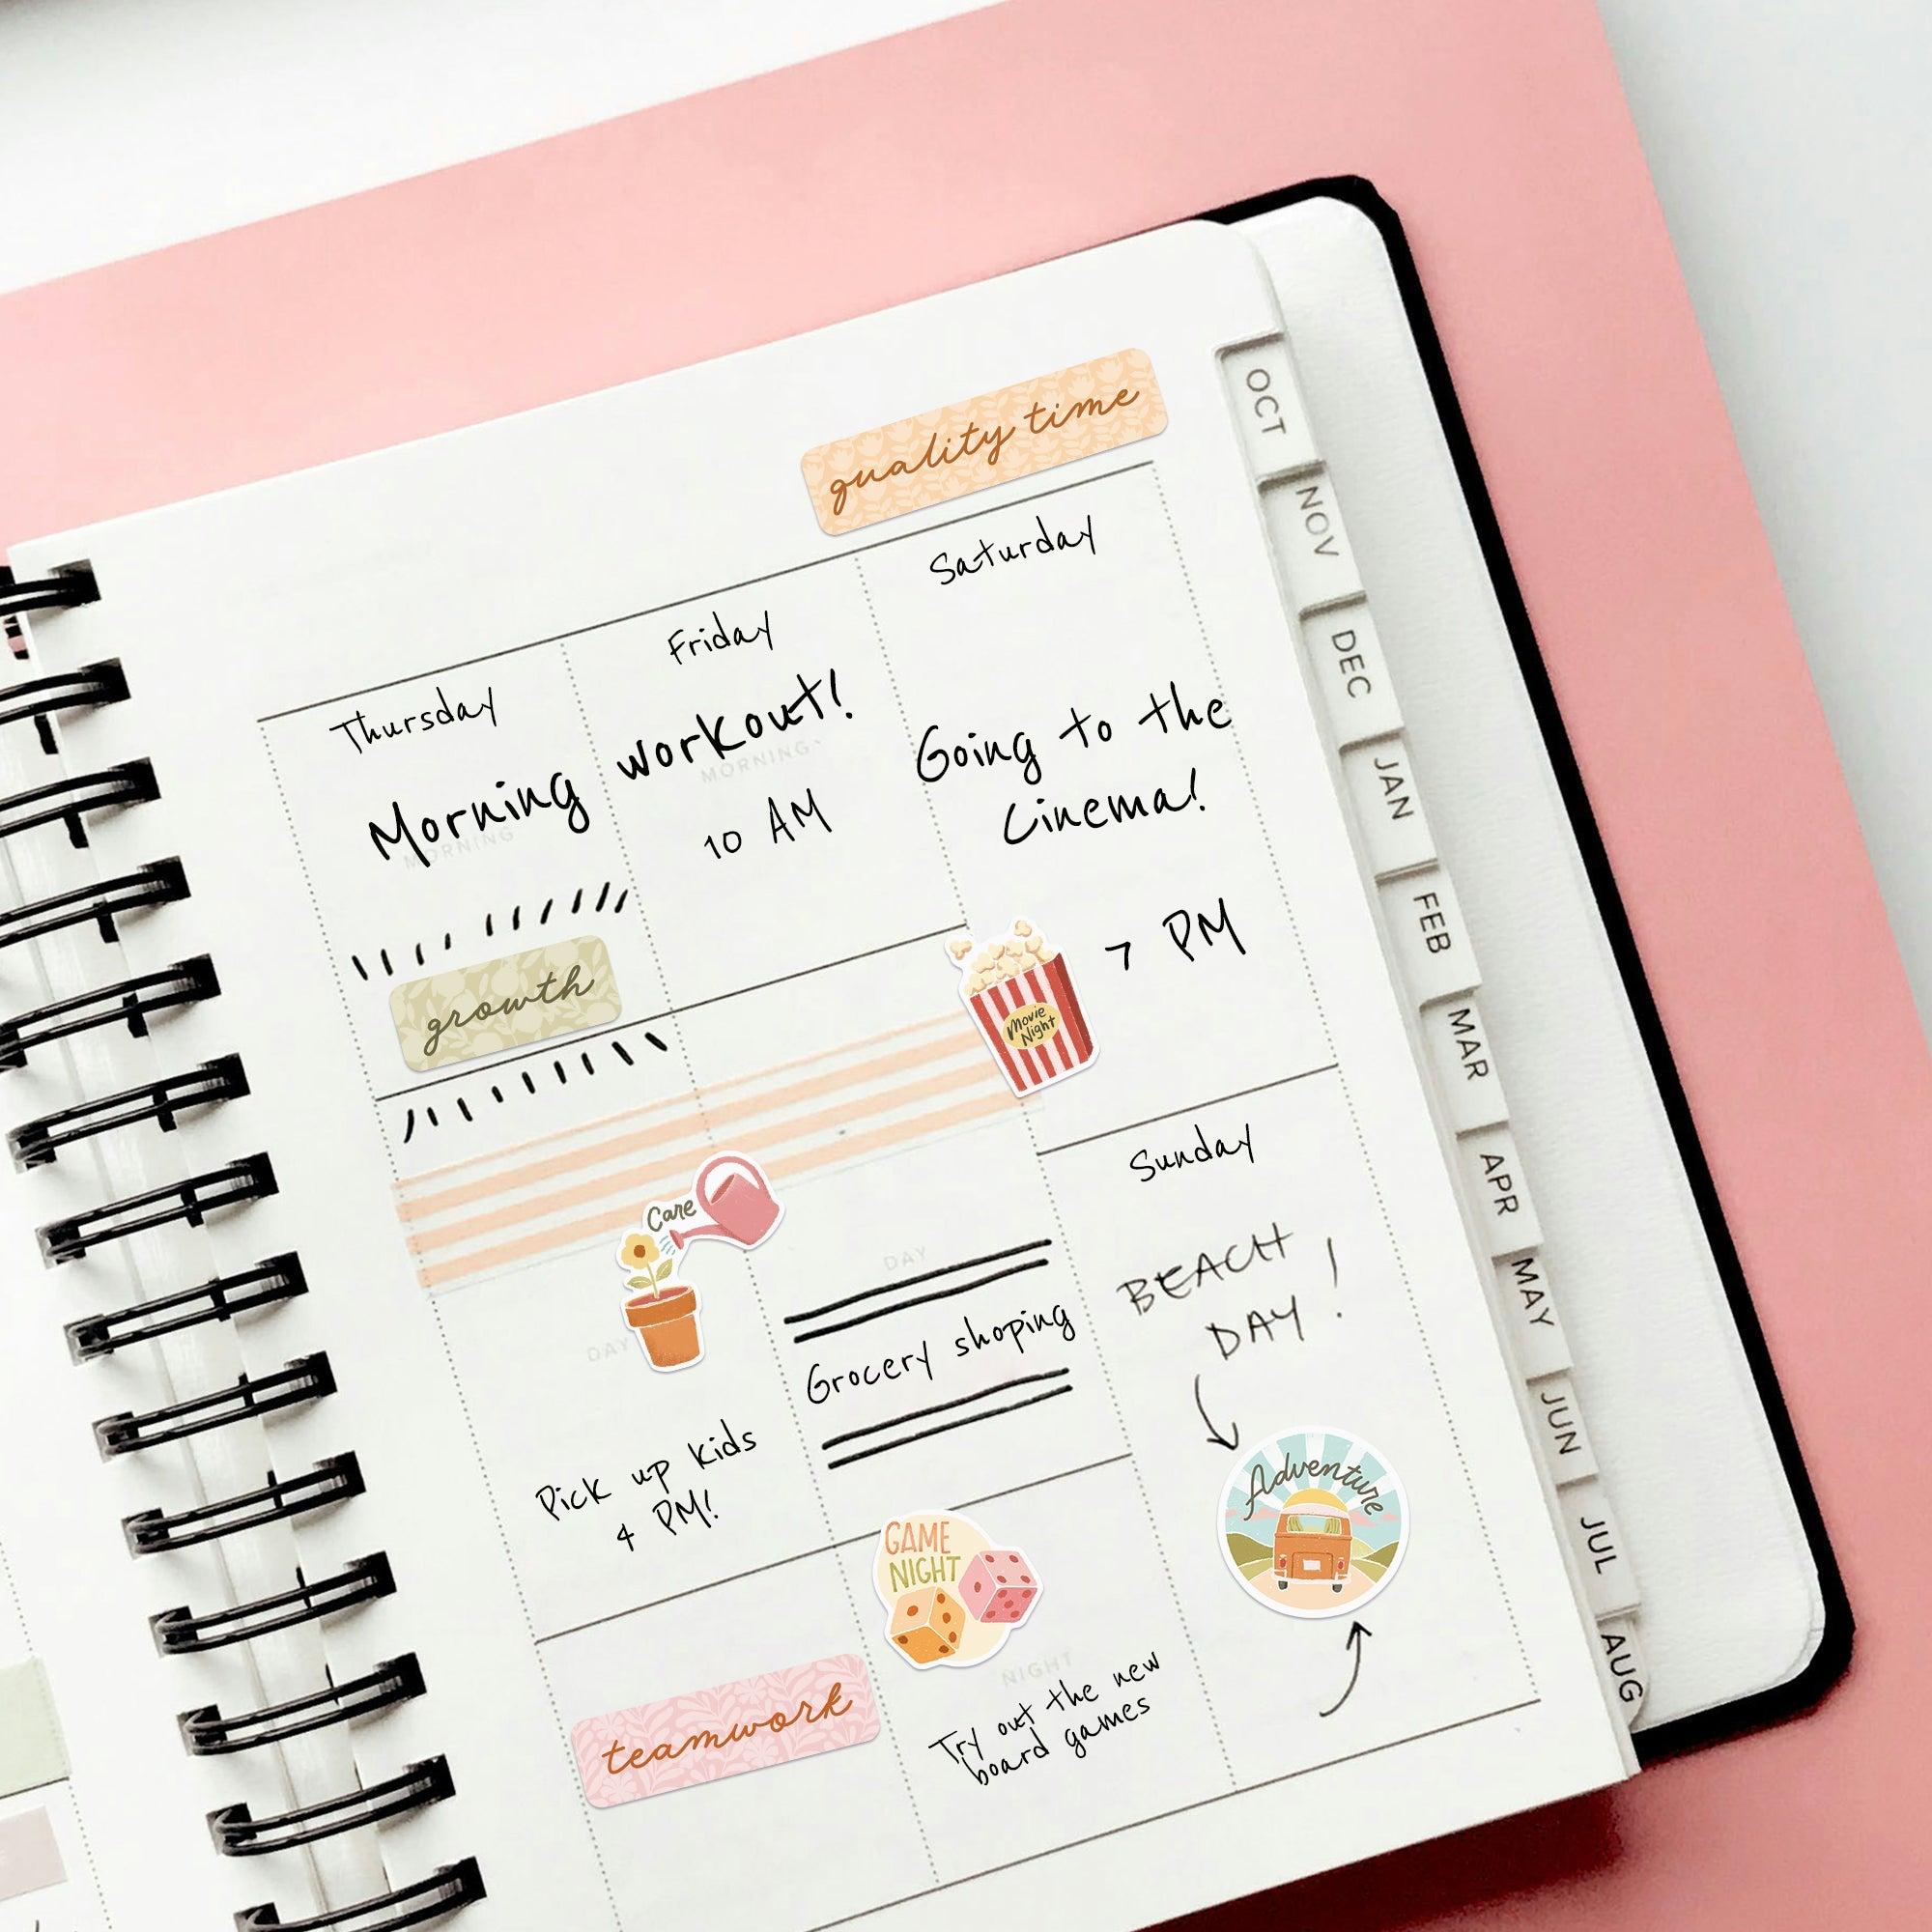 quality time
Thursday
Friday
Saturday
Morning workout!
MORNING
MORNING
10 AM
Going to the
Cinema!
7 PM
growth
Movie
Night
Care
DAY
DAY
Pick up kids
4 PM!
Grocery shoping
Sunday
BEACH
DAY!
Adventure
GAME
NIGHT
NIGHT
Try out the new
board games
teamwork
OCT
NOV
DEC
JAN
FEB
MAR
APR
MAY
JUN
JUL
AUG